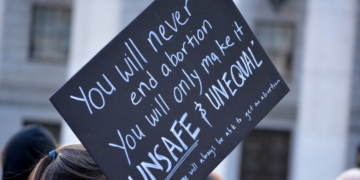 You will never
end abortion
You will only make it
UNSAFE & "UNEQUAL"
will always be able to get an abortion